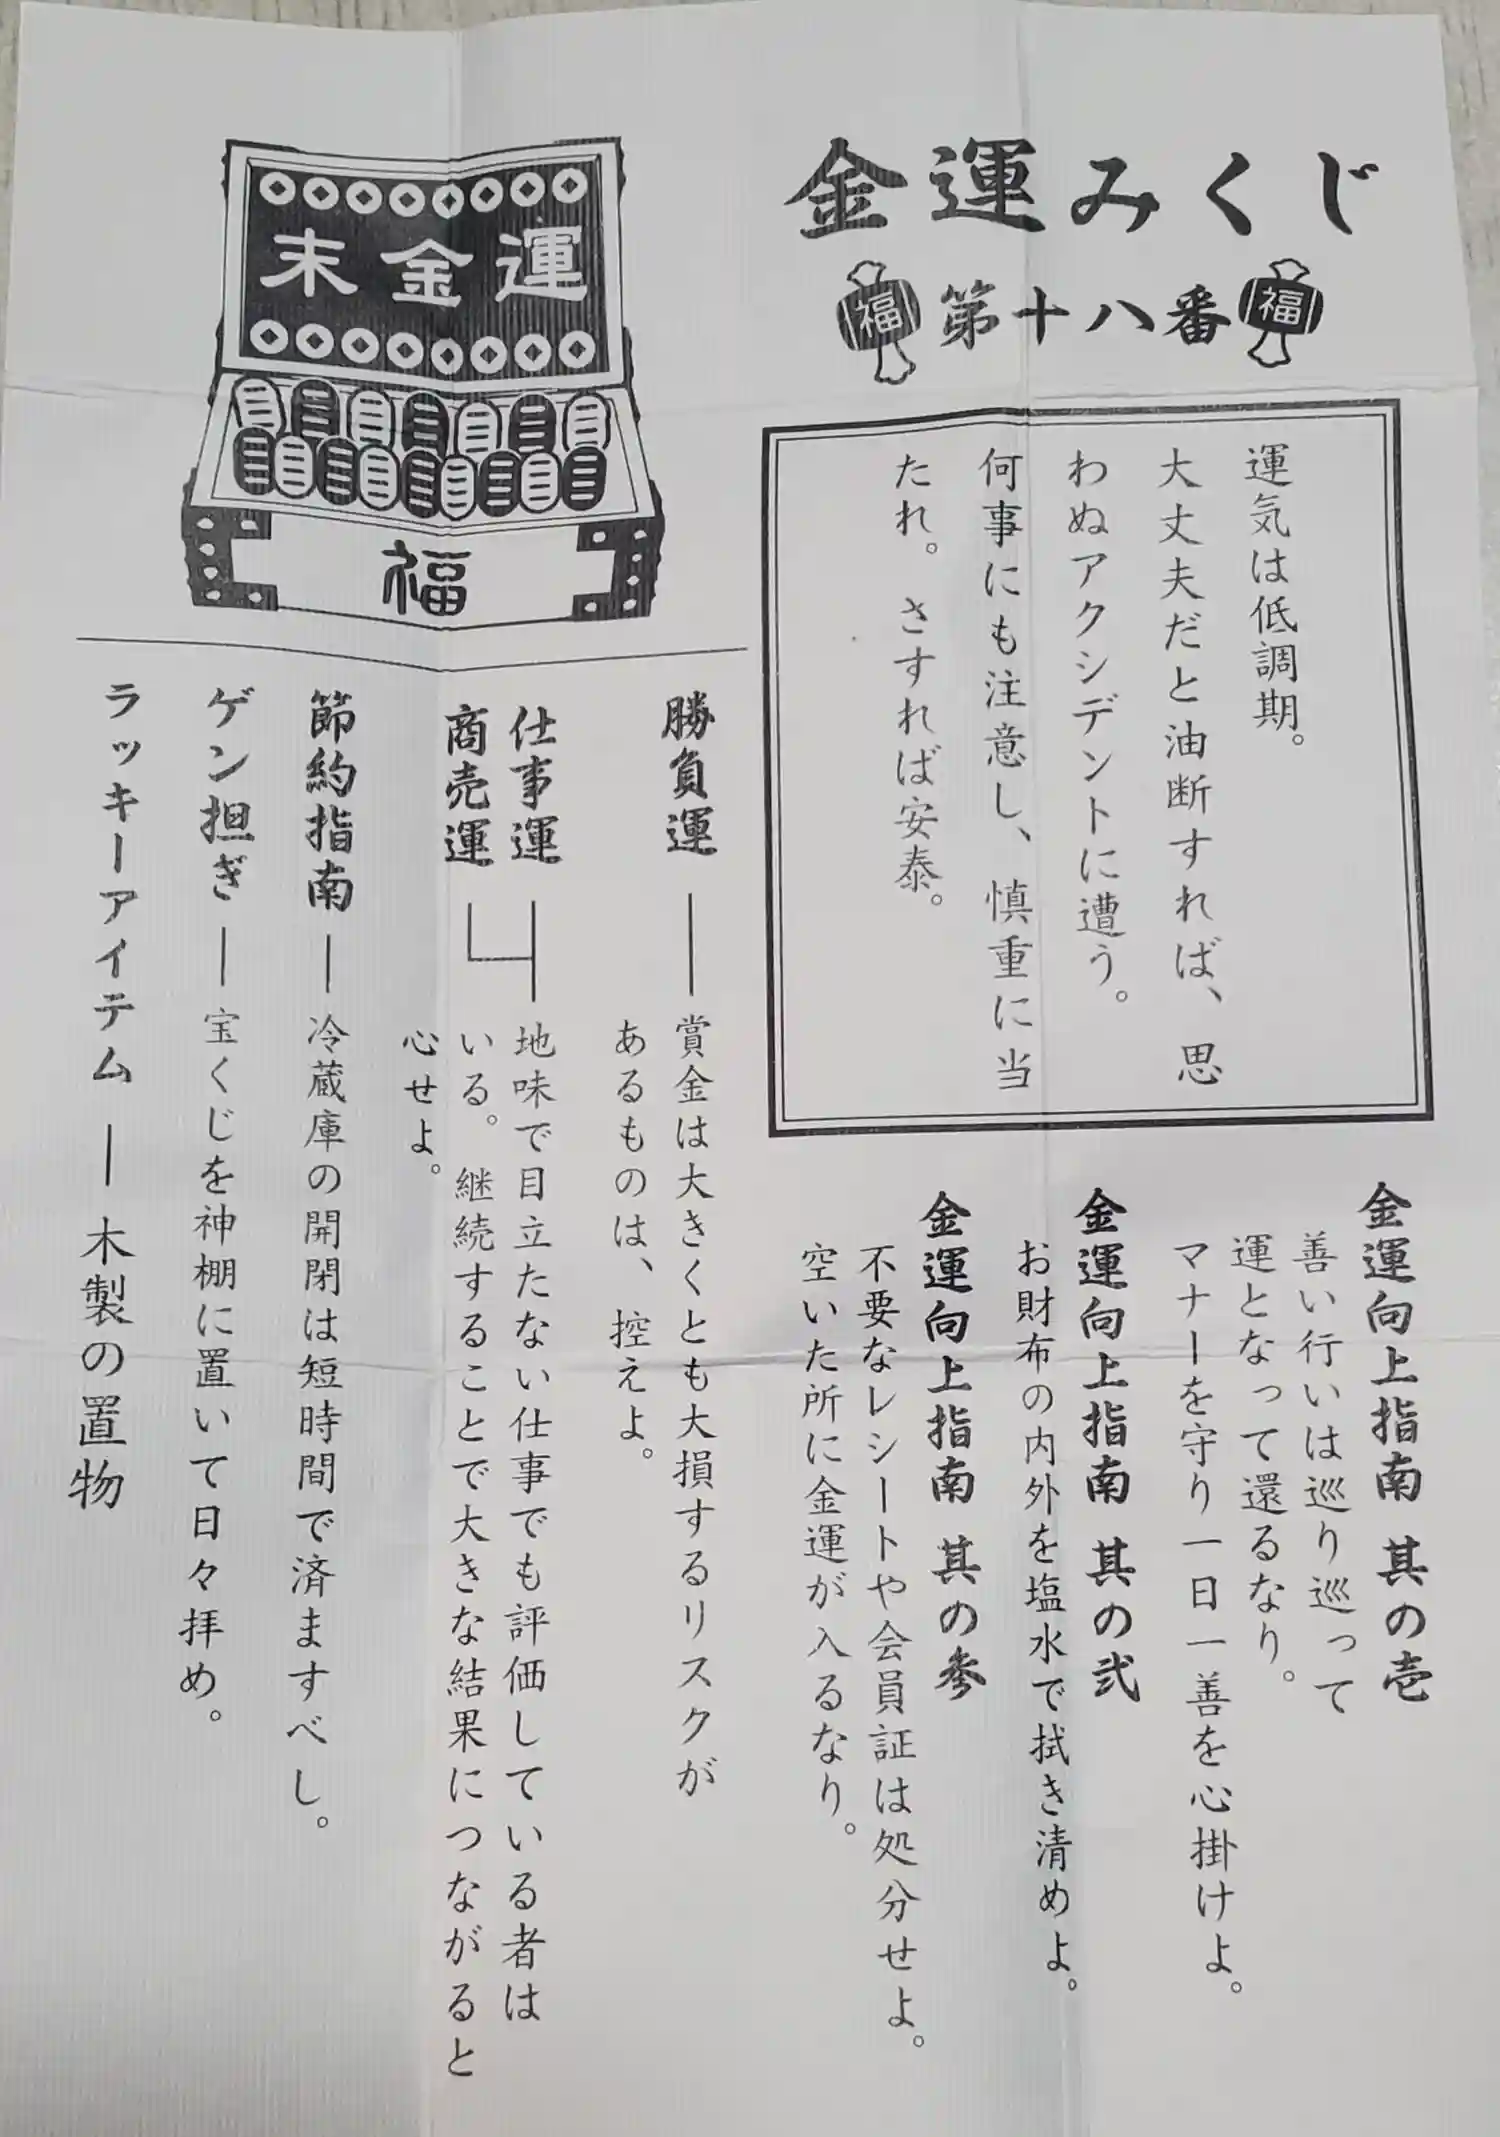 金運みくじ
福 第十八番 福
運気は低調期。
大丈夫だと油断すれば、思
わぬアクシデントに遭う。
何事にも注意し、慎重に当
たれ。さすれば安泰。
金運向上指南 其の壱
善い行いは巡り巡って
運となって還るなり。
マナーを守り一日一善を心掛けよ。
金運向上指南 其の弐
お財布の内外を塩水で拭き清めよ。
金運向上指南 其の参
不要なレシートや会員証は処分せよ。
空いた所に金運が入るなり。
末金運
福
勝負運
賞金は大きくとも大損するリスクが
あるものは、控えよ。
仕事運
商売運
地味で目立たない仕事でも評価している者は
いる。継続することで大きな結果につながると
心せよ。
節約指南
冷蔵庫の開閉は短時間で済ますべし。
ゲン担ぎ
宝くじを神棚に置いて日々拝め。
ラッキーアイテム
木製の置物